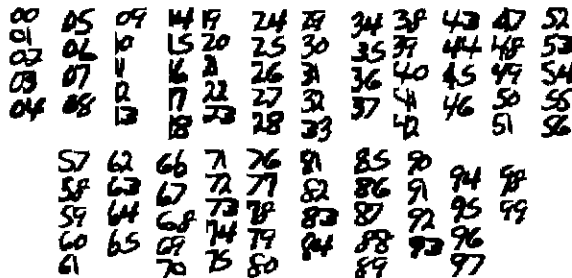 00
01
02
03
04
05
06
07
08
09
10
11
12
13
14
15
16
17
18
19
20
21
22
23
24
25
26
27
28
29
30
31
32
33
34
35
36
37
38
39
40
41
42
43
44
45
46
47
48
49
50
51
52
53
54
55
56
57
58
59
60
61
62
63
64
65
66
67
68
69
70
71
72
73
74
75
76
77
78
79
80
81
82
83
84
85
86
87
88
89
90
91
92
93
94
95
96
97
98
99